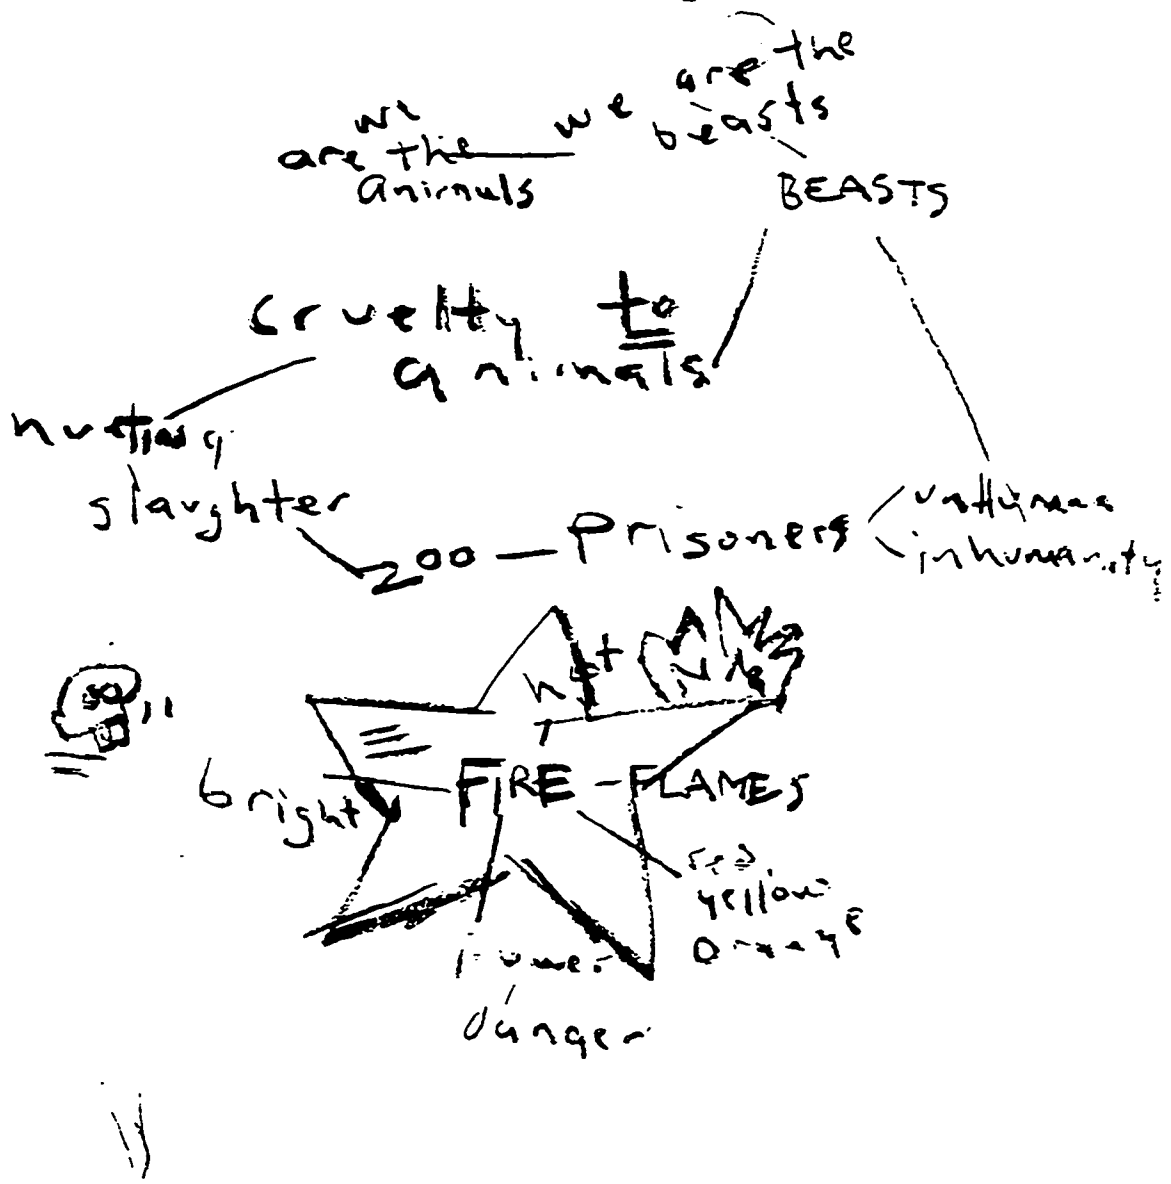 we are the
beasts
we
are the
animals
BEASTS
cruelty to
animals
hunting
slaughter
zoo
Prisoners
inhumanity
hot
bright
FIRE - FLAMES
red
yellow
orange
power
danger